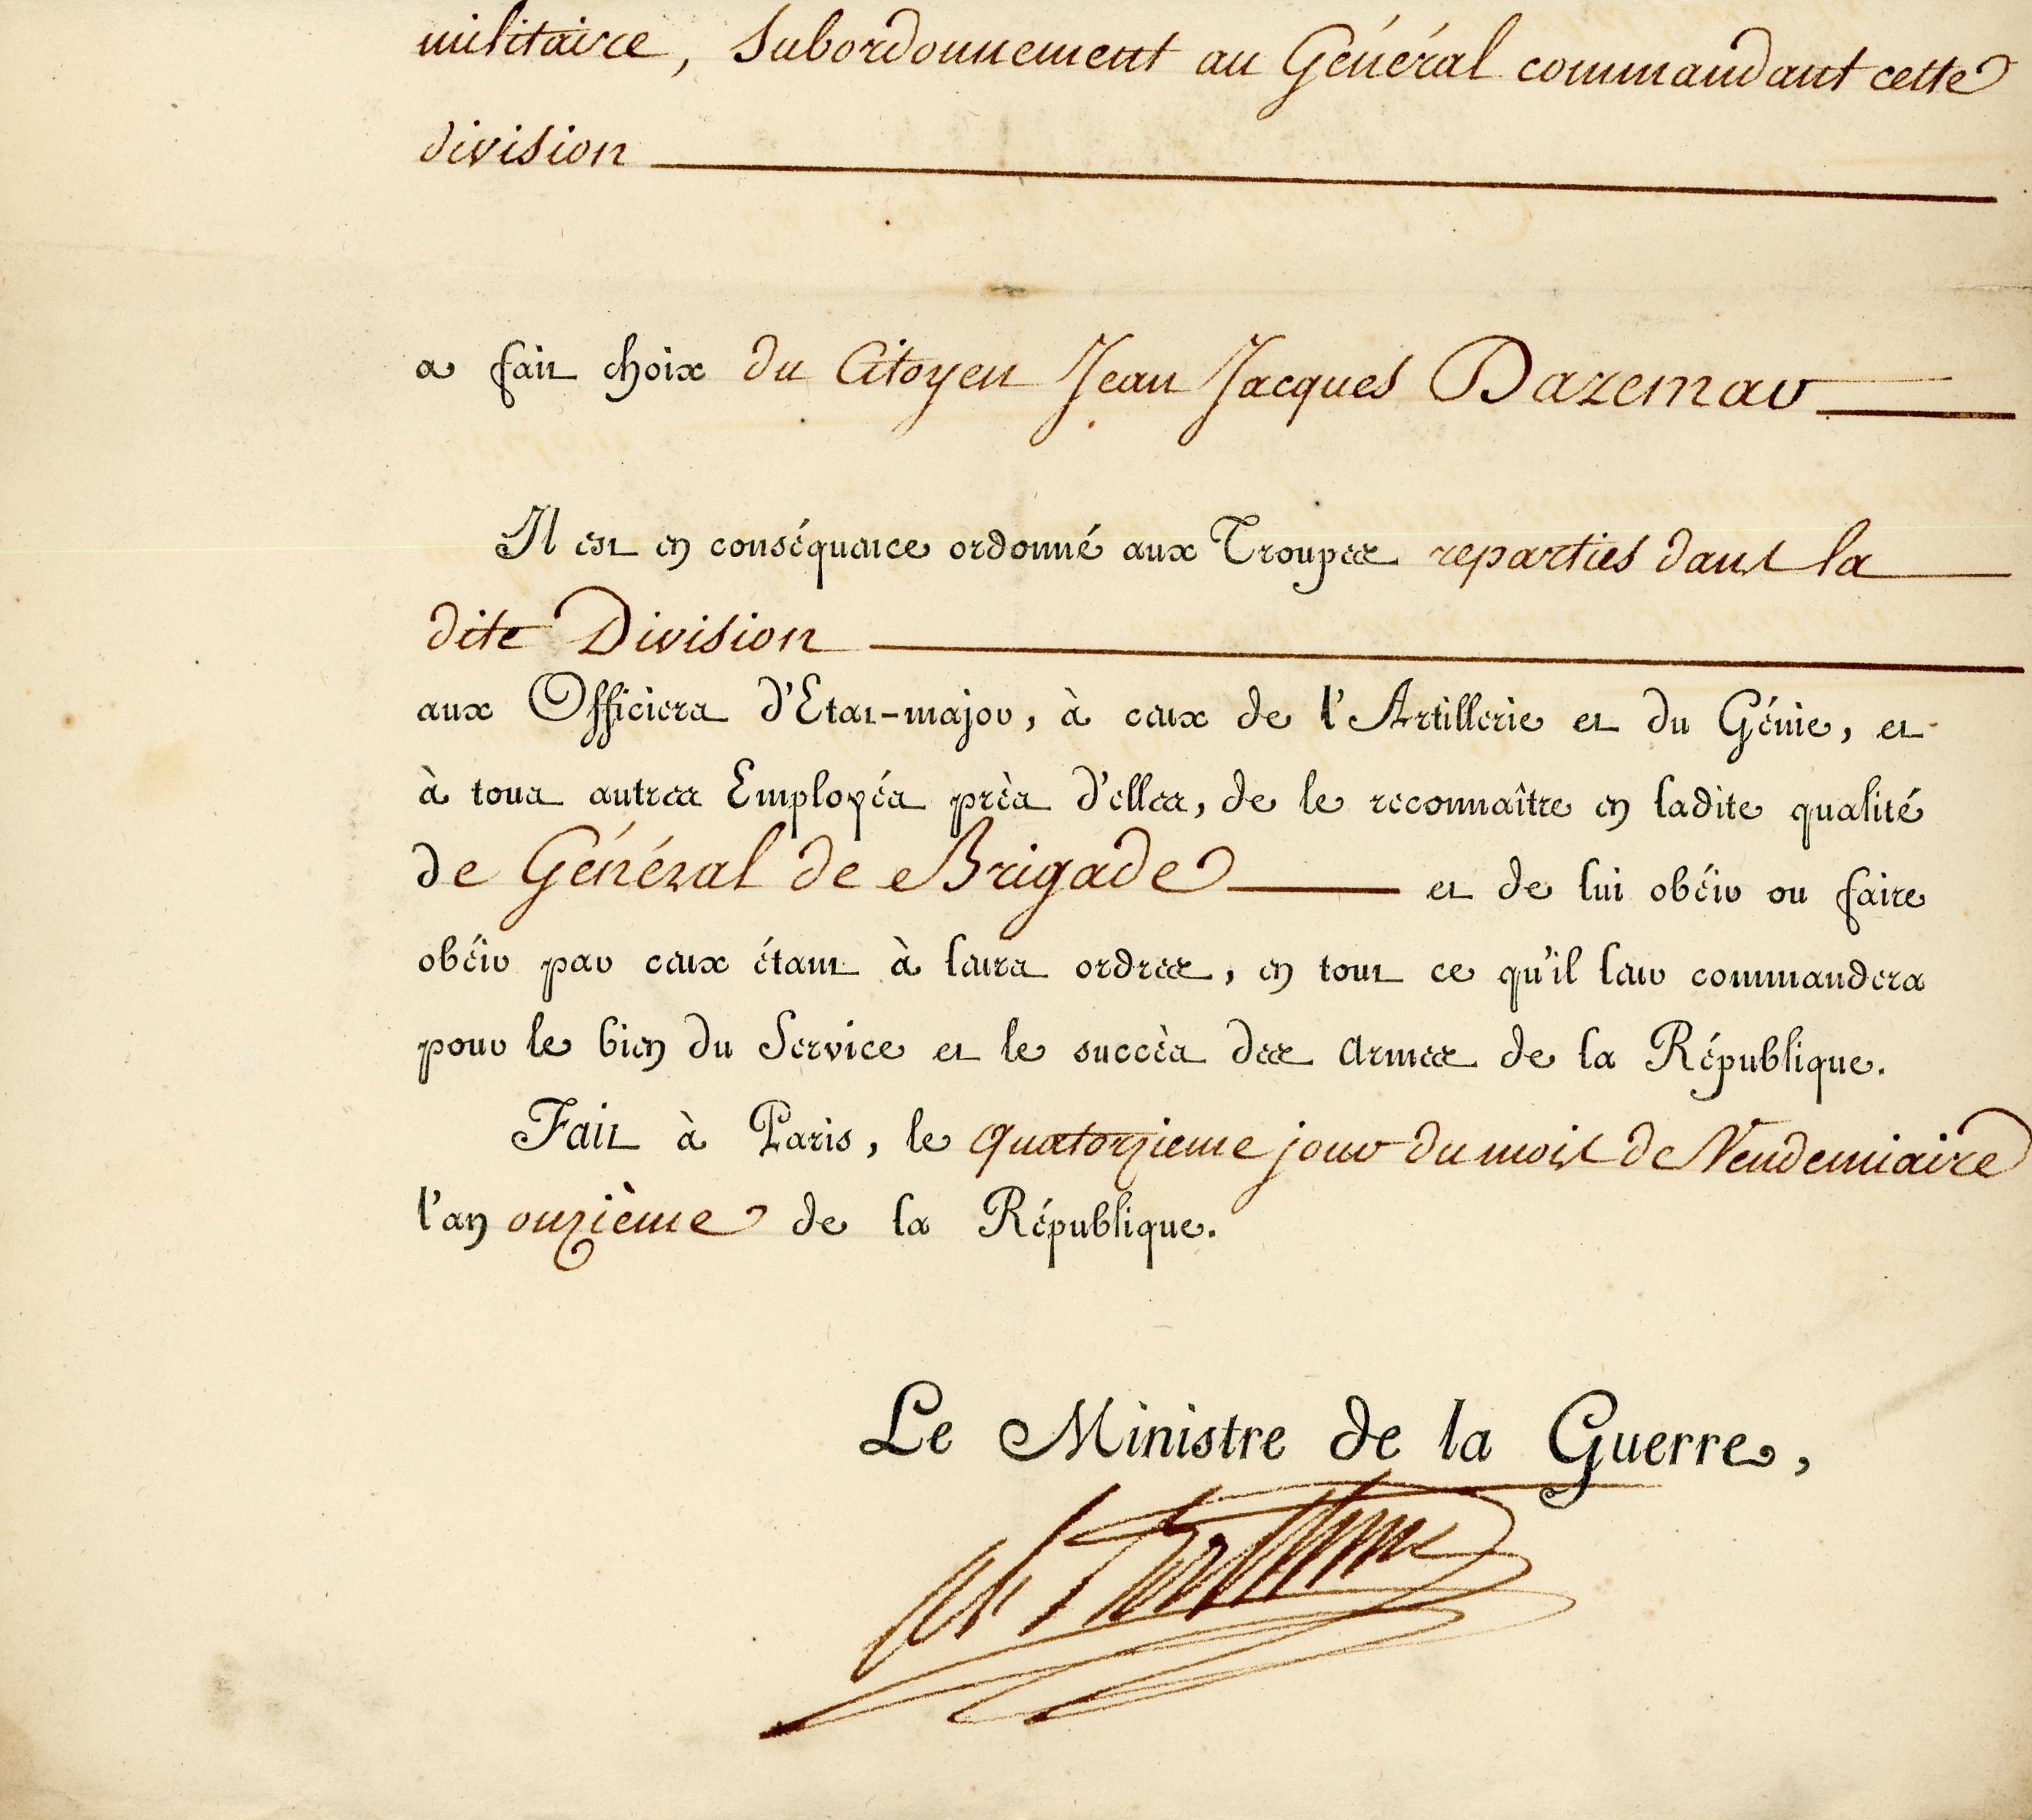 militaire, Subordonnement au Général commandant cette
division
a fait choix du Citoyen Jean Jacques Bazemar
Il est en conséquence ordonné aux Troupes reparties dans la
dite Division
aux Officiers d'Etat-major, à ceux de l'Artillerie et du Génie, et
à tous autres Employés près d'elles, de le reconnaître en ladite qualité
de Général de Brigade et de lui obéir ou faire
obéir par ceux étant à leurs ordres, en tout ce qu'il leur commandera
pour le bien du Service et le succès des Armes de la République.
Fait à Paris, le quatorzieme jour du mois de Vendemiaire
l'an onzième de la République.
Le Ministre de la Guerre,
Alex Berthier